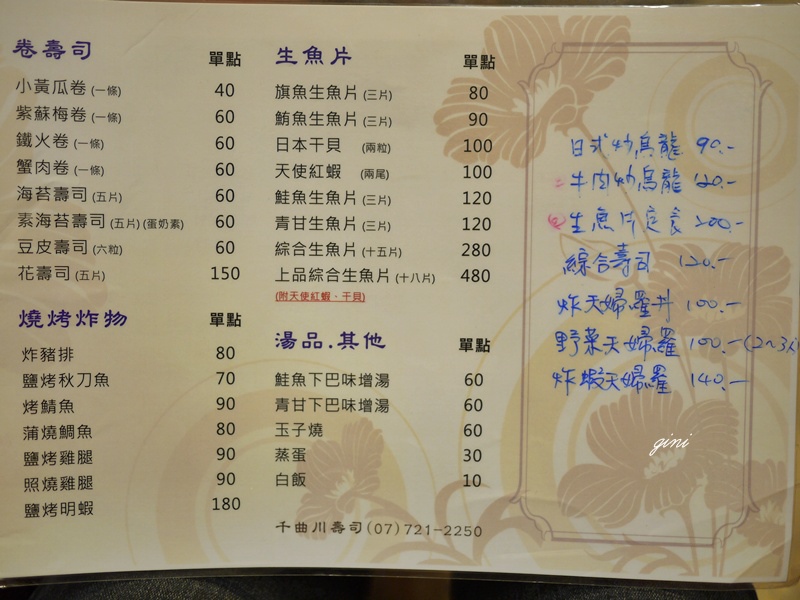 卷壽司 單點
小黃瓜卷 (一條) 40
紫蘇梅卷 (一條) 60
鐵火卷 (一條) 60
蟹肉卷 (一條) 60
海苔壽司 (五片) 60
素海苔壽司 (五片) (蛋奶素) 60
豆皮壽司 (六粒) 60
花壽司 (五片) 150
燒烤炸物 單點
炸豬排 80
鹽烤秋刀魚 70
烤鯖魚 90
蒲燒鯛魚 80
鹽烤雞腿 90
照燒雞腿 90
鹽烤明蝦 180
生魚片 單點
旗魚生魚片 (三片) 80
鮪魚生魚片 (三片) 90
日本干貝 (兩粒) 100
天使紅蝦 (兩尾) 100
鮭魚生魚片 (三片) 120
青甘生魚片 (三片) 120
綜合生魚片 (十五片) 280
上品綜合生魚片 (十八片) 480
(附天使紅蝦、干貝)
湯品.其他 單點
鮭魚下巴味增湯 60
青甘下巴味增湯 60
玉子燒 60
蒸蛋 30
白飯 10
千曲川壽司(07)721-2250
日式炒烏龍 90.-
牛肉炒烏龍 120.-
生魚片定食 200.-
綜合壽司 120.-
炸天婦羅丼 100.-
野菜天婦羅 100.-(2~3人
炸蝦天婦羅 140.-
gini